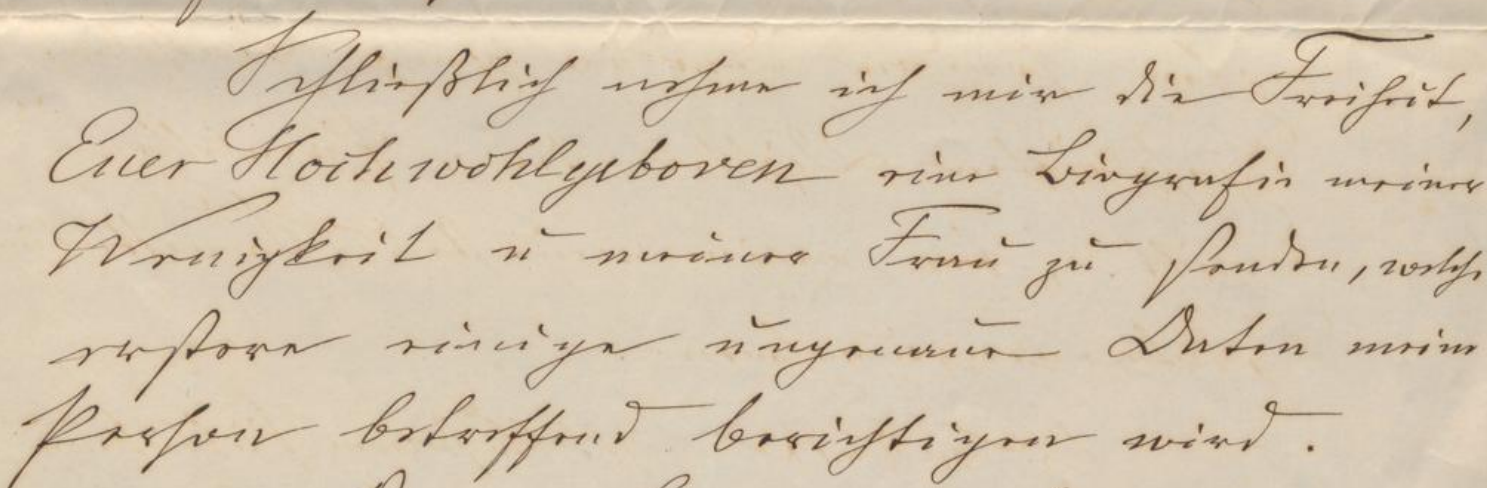 Schließlich nehme ich mir die Freiheit,
Euer Hochwohlgeboren eine Biografie meiner
Wenigkeit u meiner Frau zu senden, welche
erstere einige ungenaue Daten meine
Person betreffend berichtigen wird.